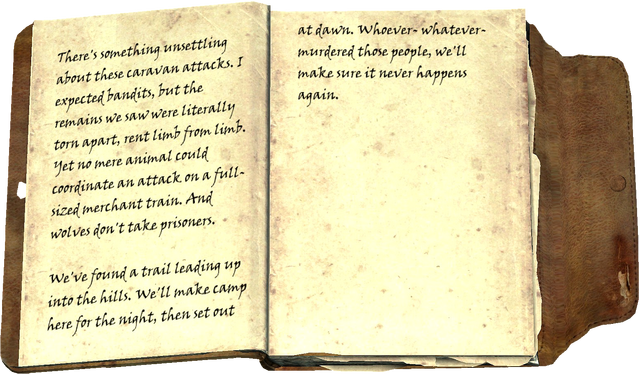 There's something unsettling
about these caravan attacks. I
expected bandits, but the
remains we saw were literally
torn apart, rent limb from limb.
Yet no mere animal could
coordinate an attack on a full-
sized merchant train. And
wolves don't take prisoners.
We've found a trail leading up
into the hills. We'll make camp
here for the night, then set out
at dawn. Whoever- whatever-
murdered those people, we'll
make sure it never happens
again.